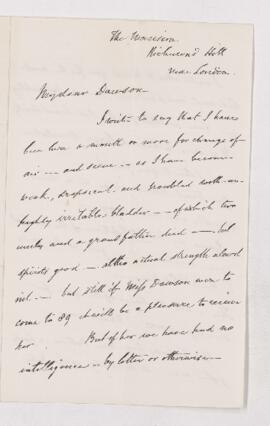 The Mansion
Richmond Hill
near London.
My dear Dawson –
I write to say that I have
been here a month or more for change of
air – and scene – as I have become
weak, dropsical, and troubled with an
highly irritable bladder – of which two
uncles and a grandfather died – but
spirits good – altho actual strength almost
nil. – but still if Miss Dawson were to
come to 89 it will be a pleasure to receive
her. But of her we have had no
intelligence – by letter or otherwise –